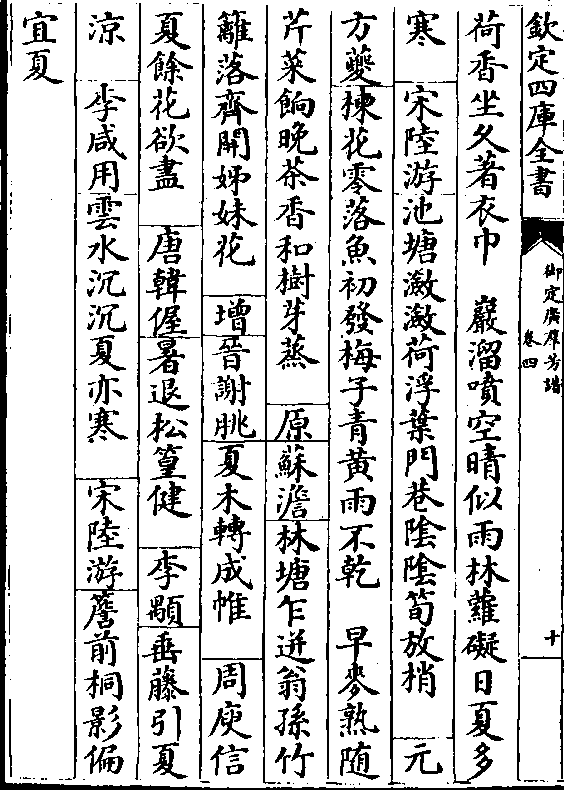 欽定四庫全書
御定廣羣芳譜
卷四
十
荷香坐久著衣巾　巖溜噴空晴似雨林蘿礙日夏多
寒　宋陸游池塘瀲瀲荷浮葉門巷陰陰筍放梢　元
方夔楝花零落魚初發梅子青黄雨不乾　早麥熟隨
芹菜餉晚茶香和樹芽蒸　原蘇澹林塘乍迸翁孫竹
籬落齊開姊妹花　增晉謝朓夏木轉成帷　周庾信
夏餘花欲盡　唐韓偓暑退松篁健　李顒垂藤引夏
涼　李咸用雲水沉沉夏亦寒　宋陸游簷前桐影偏
宜夏